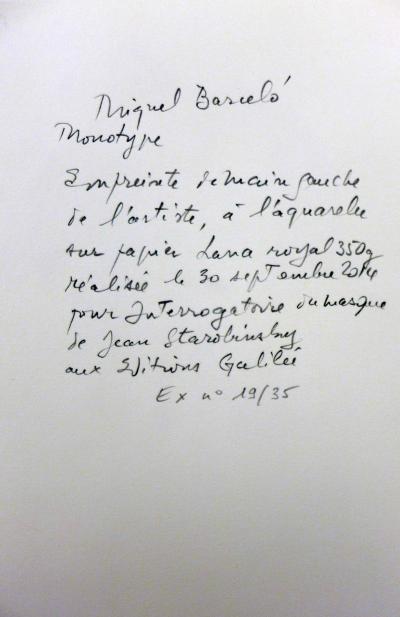 Miquel Barceló
Monotype
Empreinte de main gauche
de l'artiste, à l'aquarelle
sur papier Lana royal 350g
réalisée le 30 septembre 2014
pour Interrogatoire du masque
de Jean Starobinsky
aux Editions Galilée
Ex n° 19/35